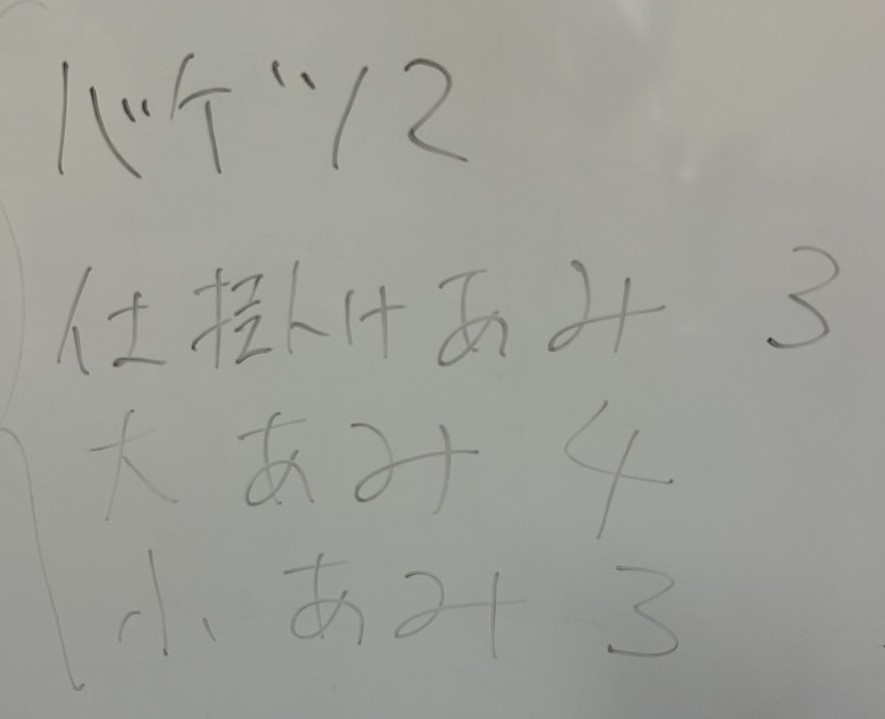 バケツ 2
仕掛けあみ 3
大あみ 4
小あみ 3